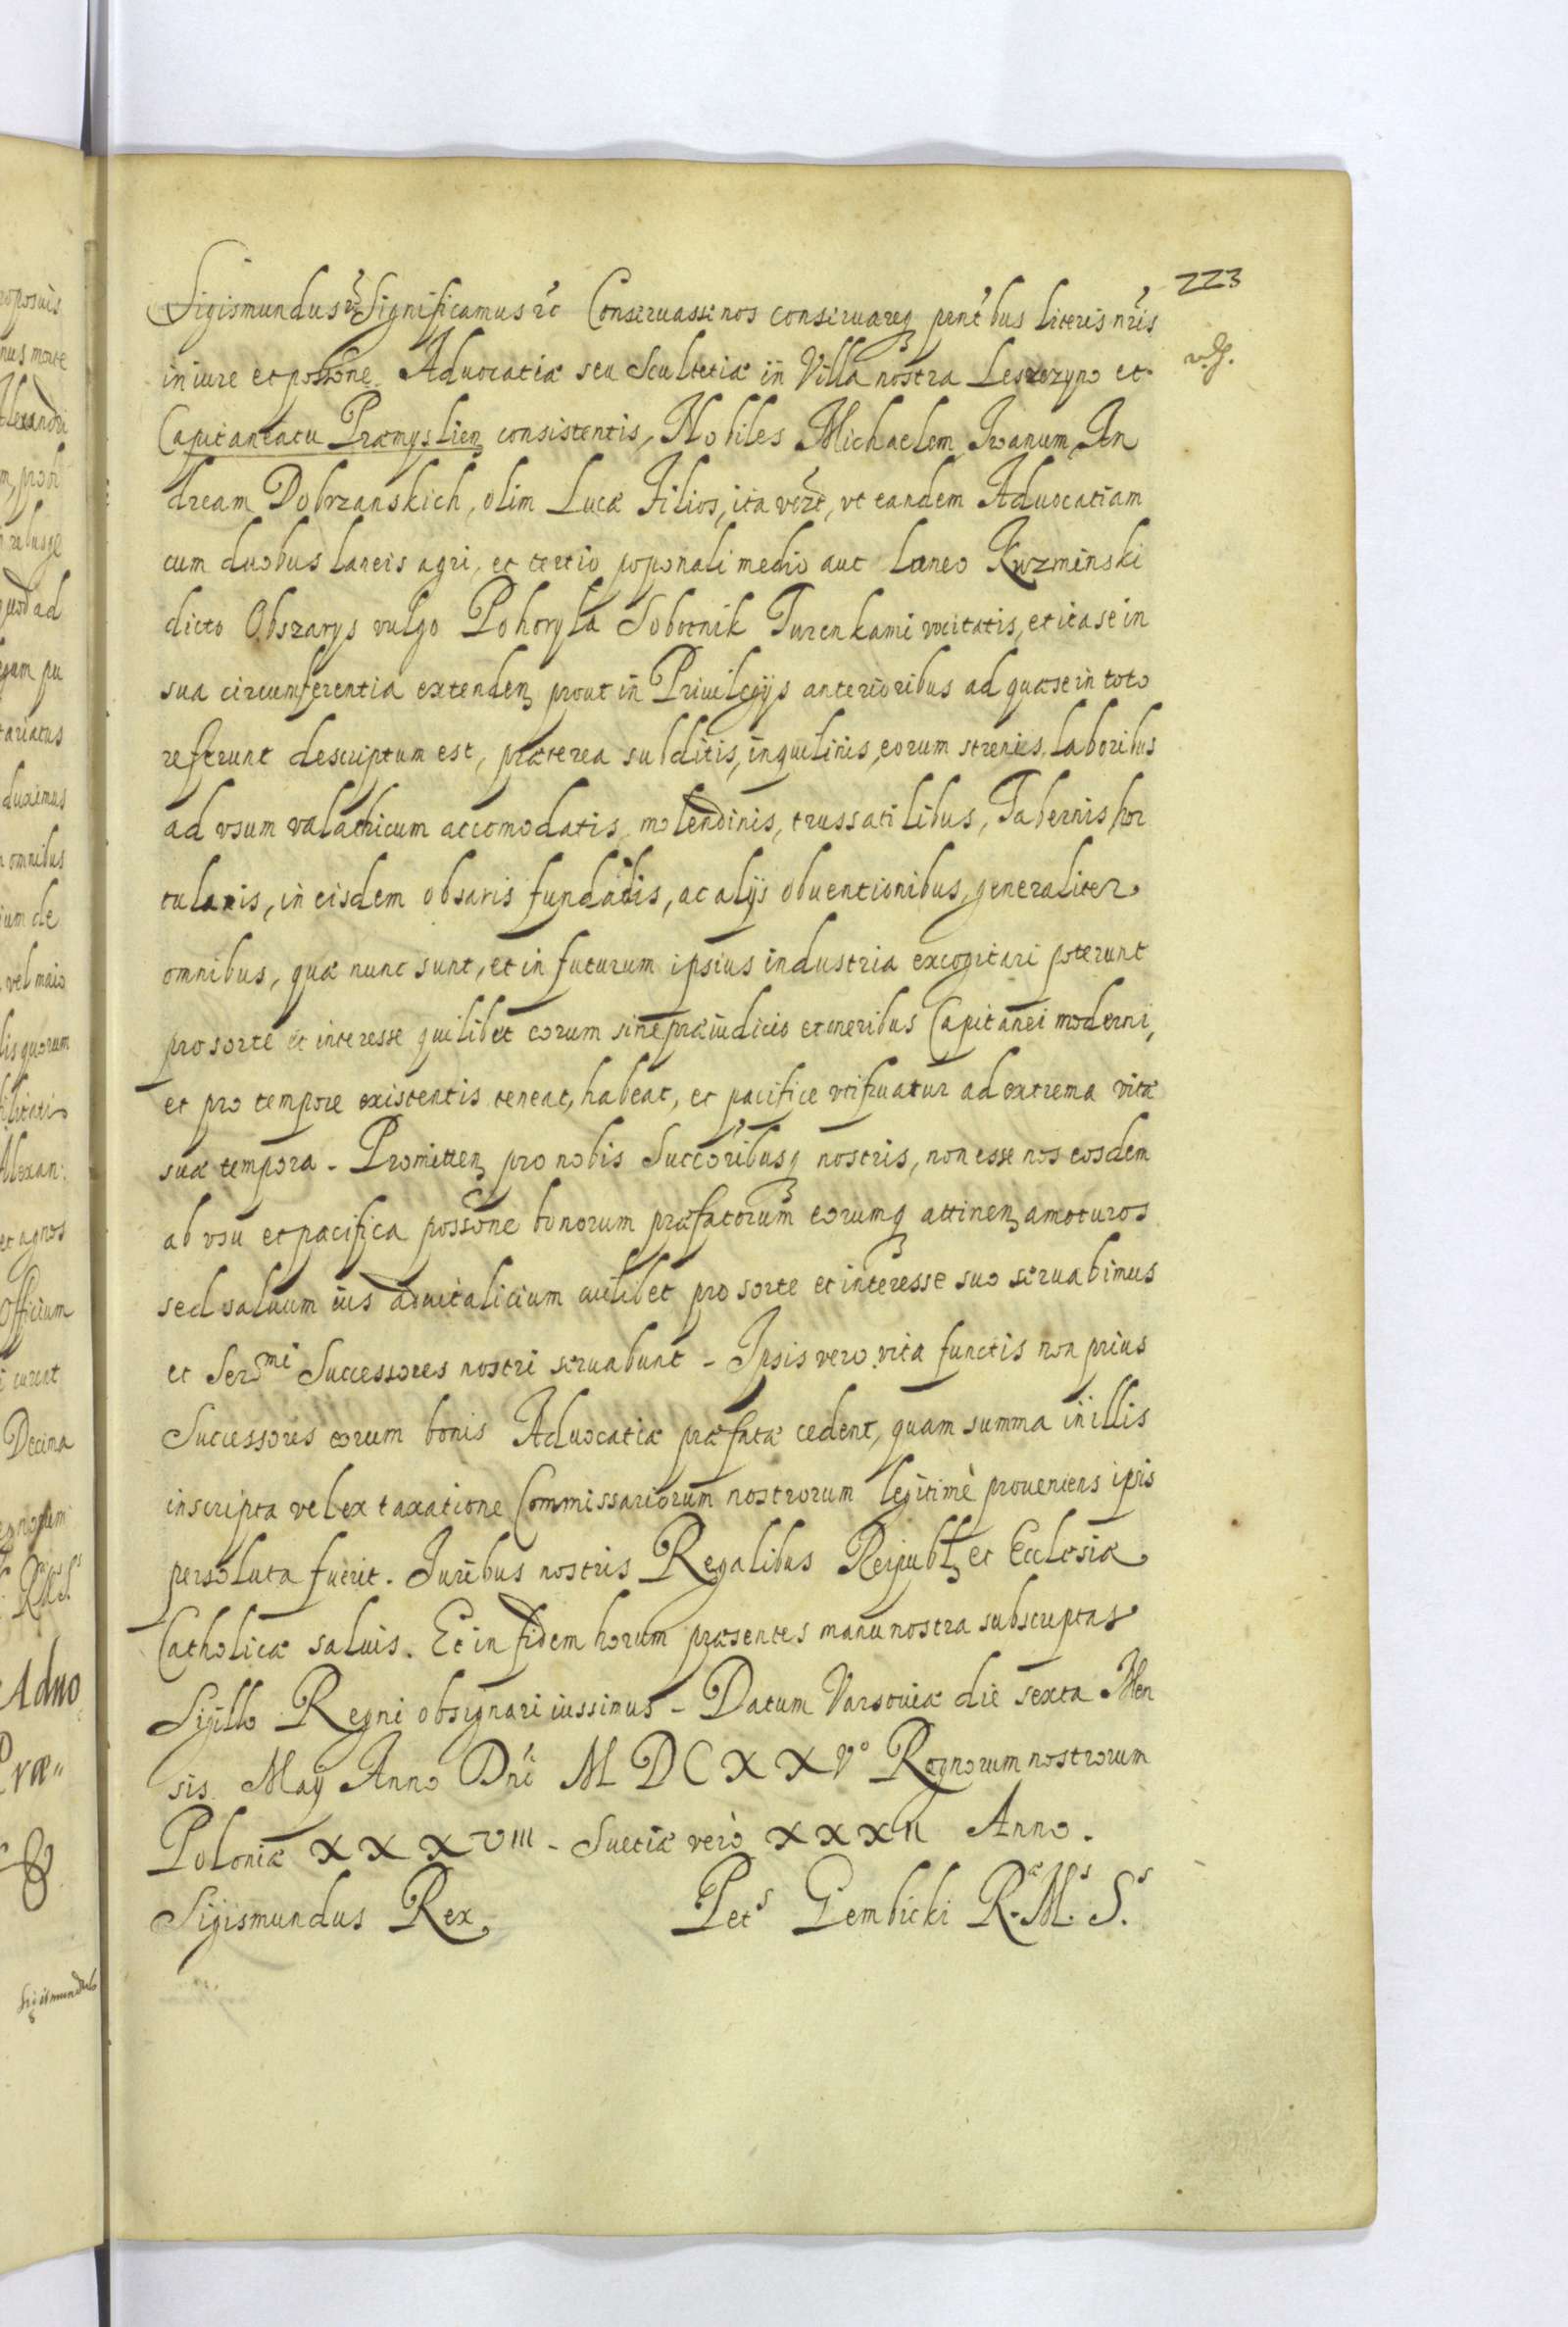 223
Sigismundus etc Significamus etc Conseruasse nos conseruareq pntbus literis nris
in iure et possone Aduocatiæ seu Scultetiæ in Villa nostra Leszczyno et
Capitaneatu Præmyslien consistentis, Nobiles Michaelem, Iwanum, An
dream Dobrzanskich, olim Lucæ Filios, ita vt eandem Aduocatiam
cum duobus laneis agri, et tertio poponali medio aut laneo Kuzminski
dicto Obszarys vulgo Pohoryla Sobotnik Turenkami vocitatis, et ita se in
sua circumferentia extenden prout in Priuilegijs anterioribus ad quæ se in toto
referunt descriptum est, præterea subditis, inquilinis, eorum strenis, laboribus
ad vsum valachicum accomodatis, molendinis, trussatilibus, Tabernis, hor
tulanis, in eisdem obsaris fundatis, ac alijs obuentionibus, generaliter
omnibus, quæ nunc sunt, et in futurum ipsius industria excogitari poterunt
pro sorte et interesse quilibet eorum sine præiudicio et oneribus Capitanei moderni,
et pro tempore existentis teneat, habeat, et pacifice vtifruatur ad extrema vitæ
suæ tempora - Promitten pro nobis Succoribusq nostris, non esse nos eosdem
ab vsu et pacifica possone bonorum præfatorum eorumq attinen amoturos
sed saluum ius aduitalicium cuilibet pro sorte et interesse suo seruabimus
et Sermi Successores nostri seruabunt - Ipsis vero vita functis non prius
Successores eorum bonis Aduocatiæ præfatæ cedent, quam summa in illis
inscripta vel ex taxatione Commissariorum nostrorum legitimè proueniens ipsis
persoluta fuerit. Iuribus nostris Regalibus Reipubl et Ecclesiæ
Catholicæ saluis. Et in fidem horum præsentes manu nostra subscriptas
Sigillo Regni obsignari iussimus - Datum Varsouiæ die sexta Men
sis Maij Anno Dni MDCXXVo Regnorum nostrorum
Poloniæ XXXVIII - Suetiæ verò XXXII Anno.
Sigismundus Rex. Pets Gembicki R. Ms. Ss.